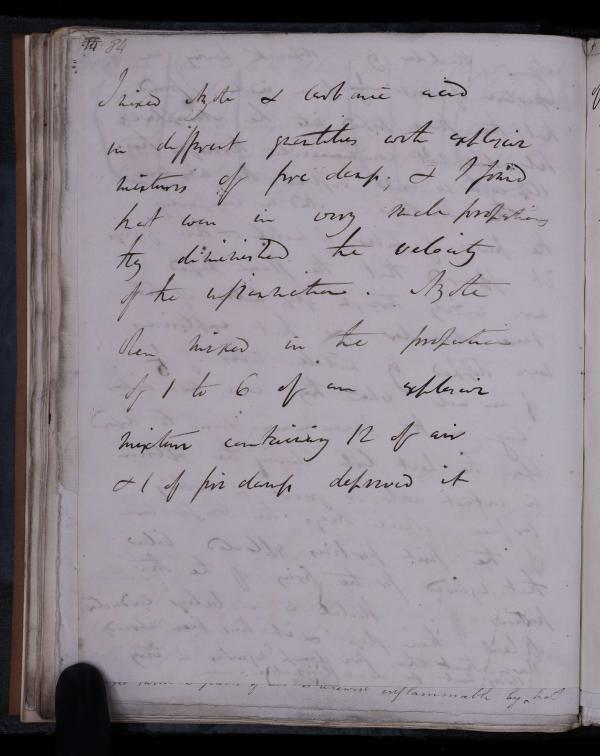 84
I mixed Azote & carbonic acid
in different quantities with explosive
mixtures of fire damp; & I found
that even in very small proportions
they diminished the velocity
of the inflammation. Azote
when mixed in the proportion
of 1 to 6 of an explosive
mixture containing 12 of air
& 1 of fire damp deprived it
inflammable by